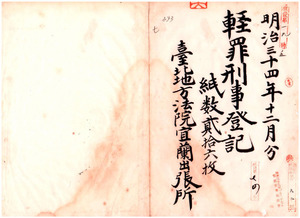 明治三十四年十二月分
輕罪刑事登記
紙数貳拾六枚
臺北地方法院宜蘭出張所